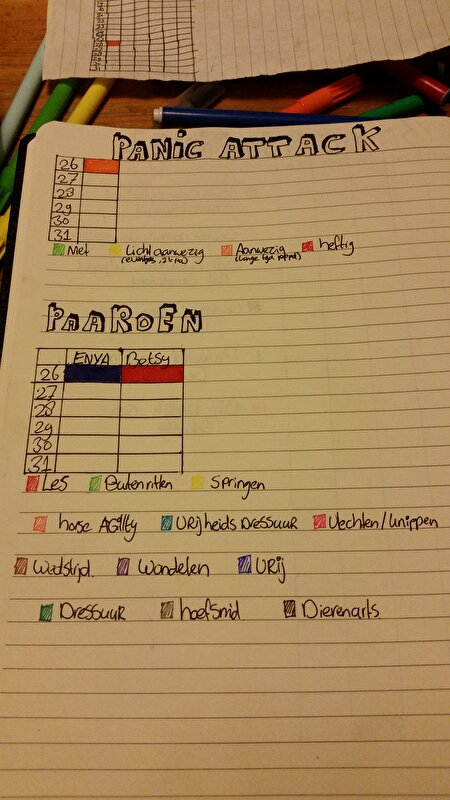 PANIC ATTACK
26
27
28
29
30
31
Licht aanwezig Aanwezig heftig
PAARDEN
ENYA Betsy
26
27
28
29
30
31
Les Buitenritten Springen
horse Agility Vrijheids Dressuur Vlechten/knippen
Wedstrijd Wandelen Vrij
Dressuur hoefsmid Dierenarts